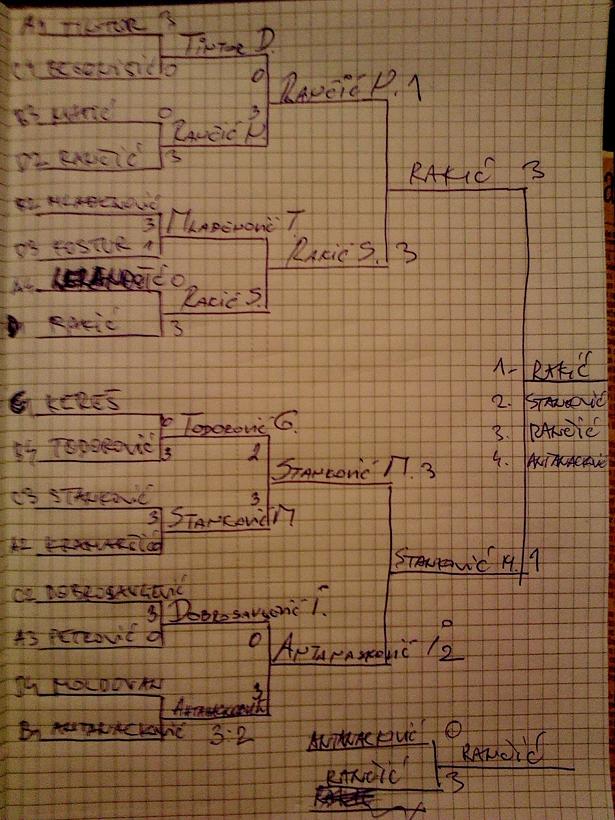 A1 TINTOR 3
0
TINTOR D.
0
B3 MATIĆ 0
D2 RANČIĆ 3
RANČIĆ N
3
RANČIĆ N. 1
MLADENOVIĆ 3
D3 KOSTUR 1
MLADENOVIĆ T.
0
RAKIĆ 3
RAKIĆ S.
RAKIĆ S. 3
RAKIĆ 3
KEREŠ 0
TODOROVIĆ 3
TODOROVIĆ G.
2
C3 STANKOVIĆ 3
A2
STANKOVIĆ M
3
STANKOVIĆ M. 3
C2 DOBROSAVLJEVIĆ 3
A3 PETKOVIĆ 0
DOBROSAVLJEVIĆ I.
0
D4 MOLDOVAN
B1 ANTANACKOVIĆ
3:2
3
ANTANASKOVIĆ 2
STANKOVIĆ M. 1
1. RAKIĆ
2. STANKOVIĆ
3. RANČIĆ
4. ANTANACKOVIĆ
ANTANACKOVIĆ 0
RANČIĆ 3
RANČIĆ